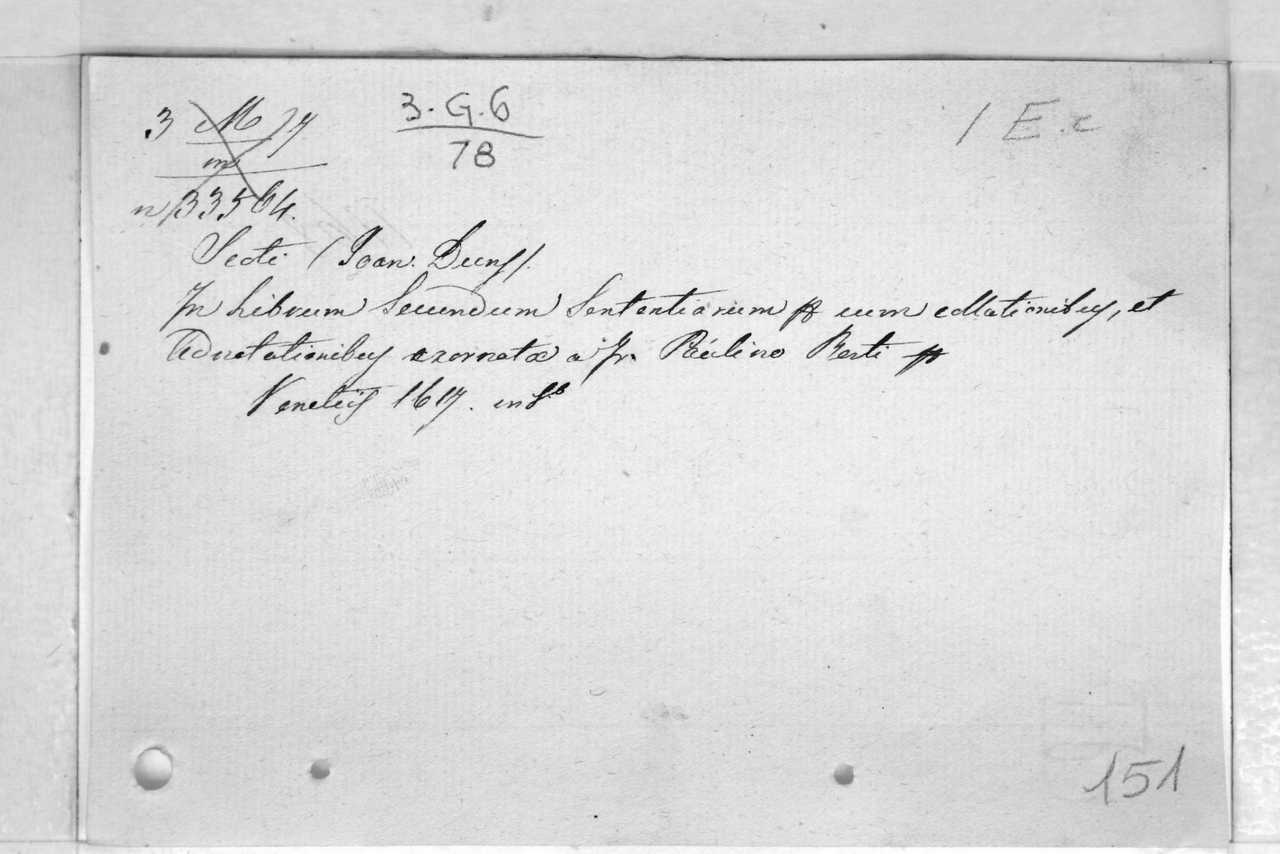 3 M 17 3.G.6 1 E.c
m 78
n 33564.
Scoti (Joan. Duns).
In Librum Secundum Sententiarum cum collationibus, et
Adnotationibus exornatæ a Fr. Paulino Berti
Venetiis 1617. in 8º
151